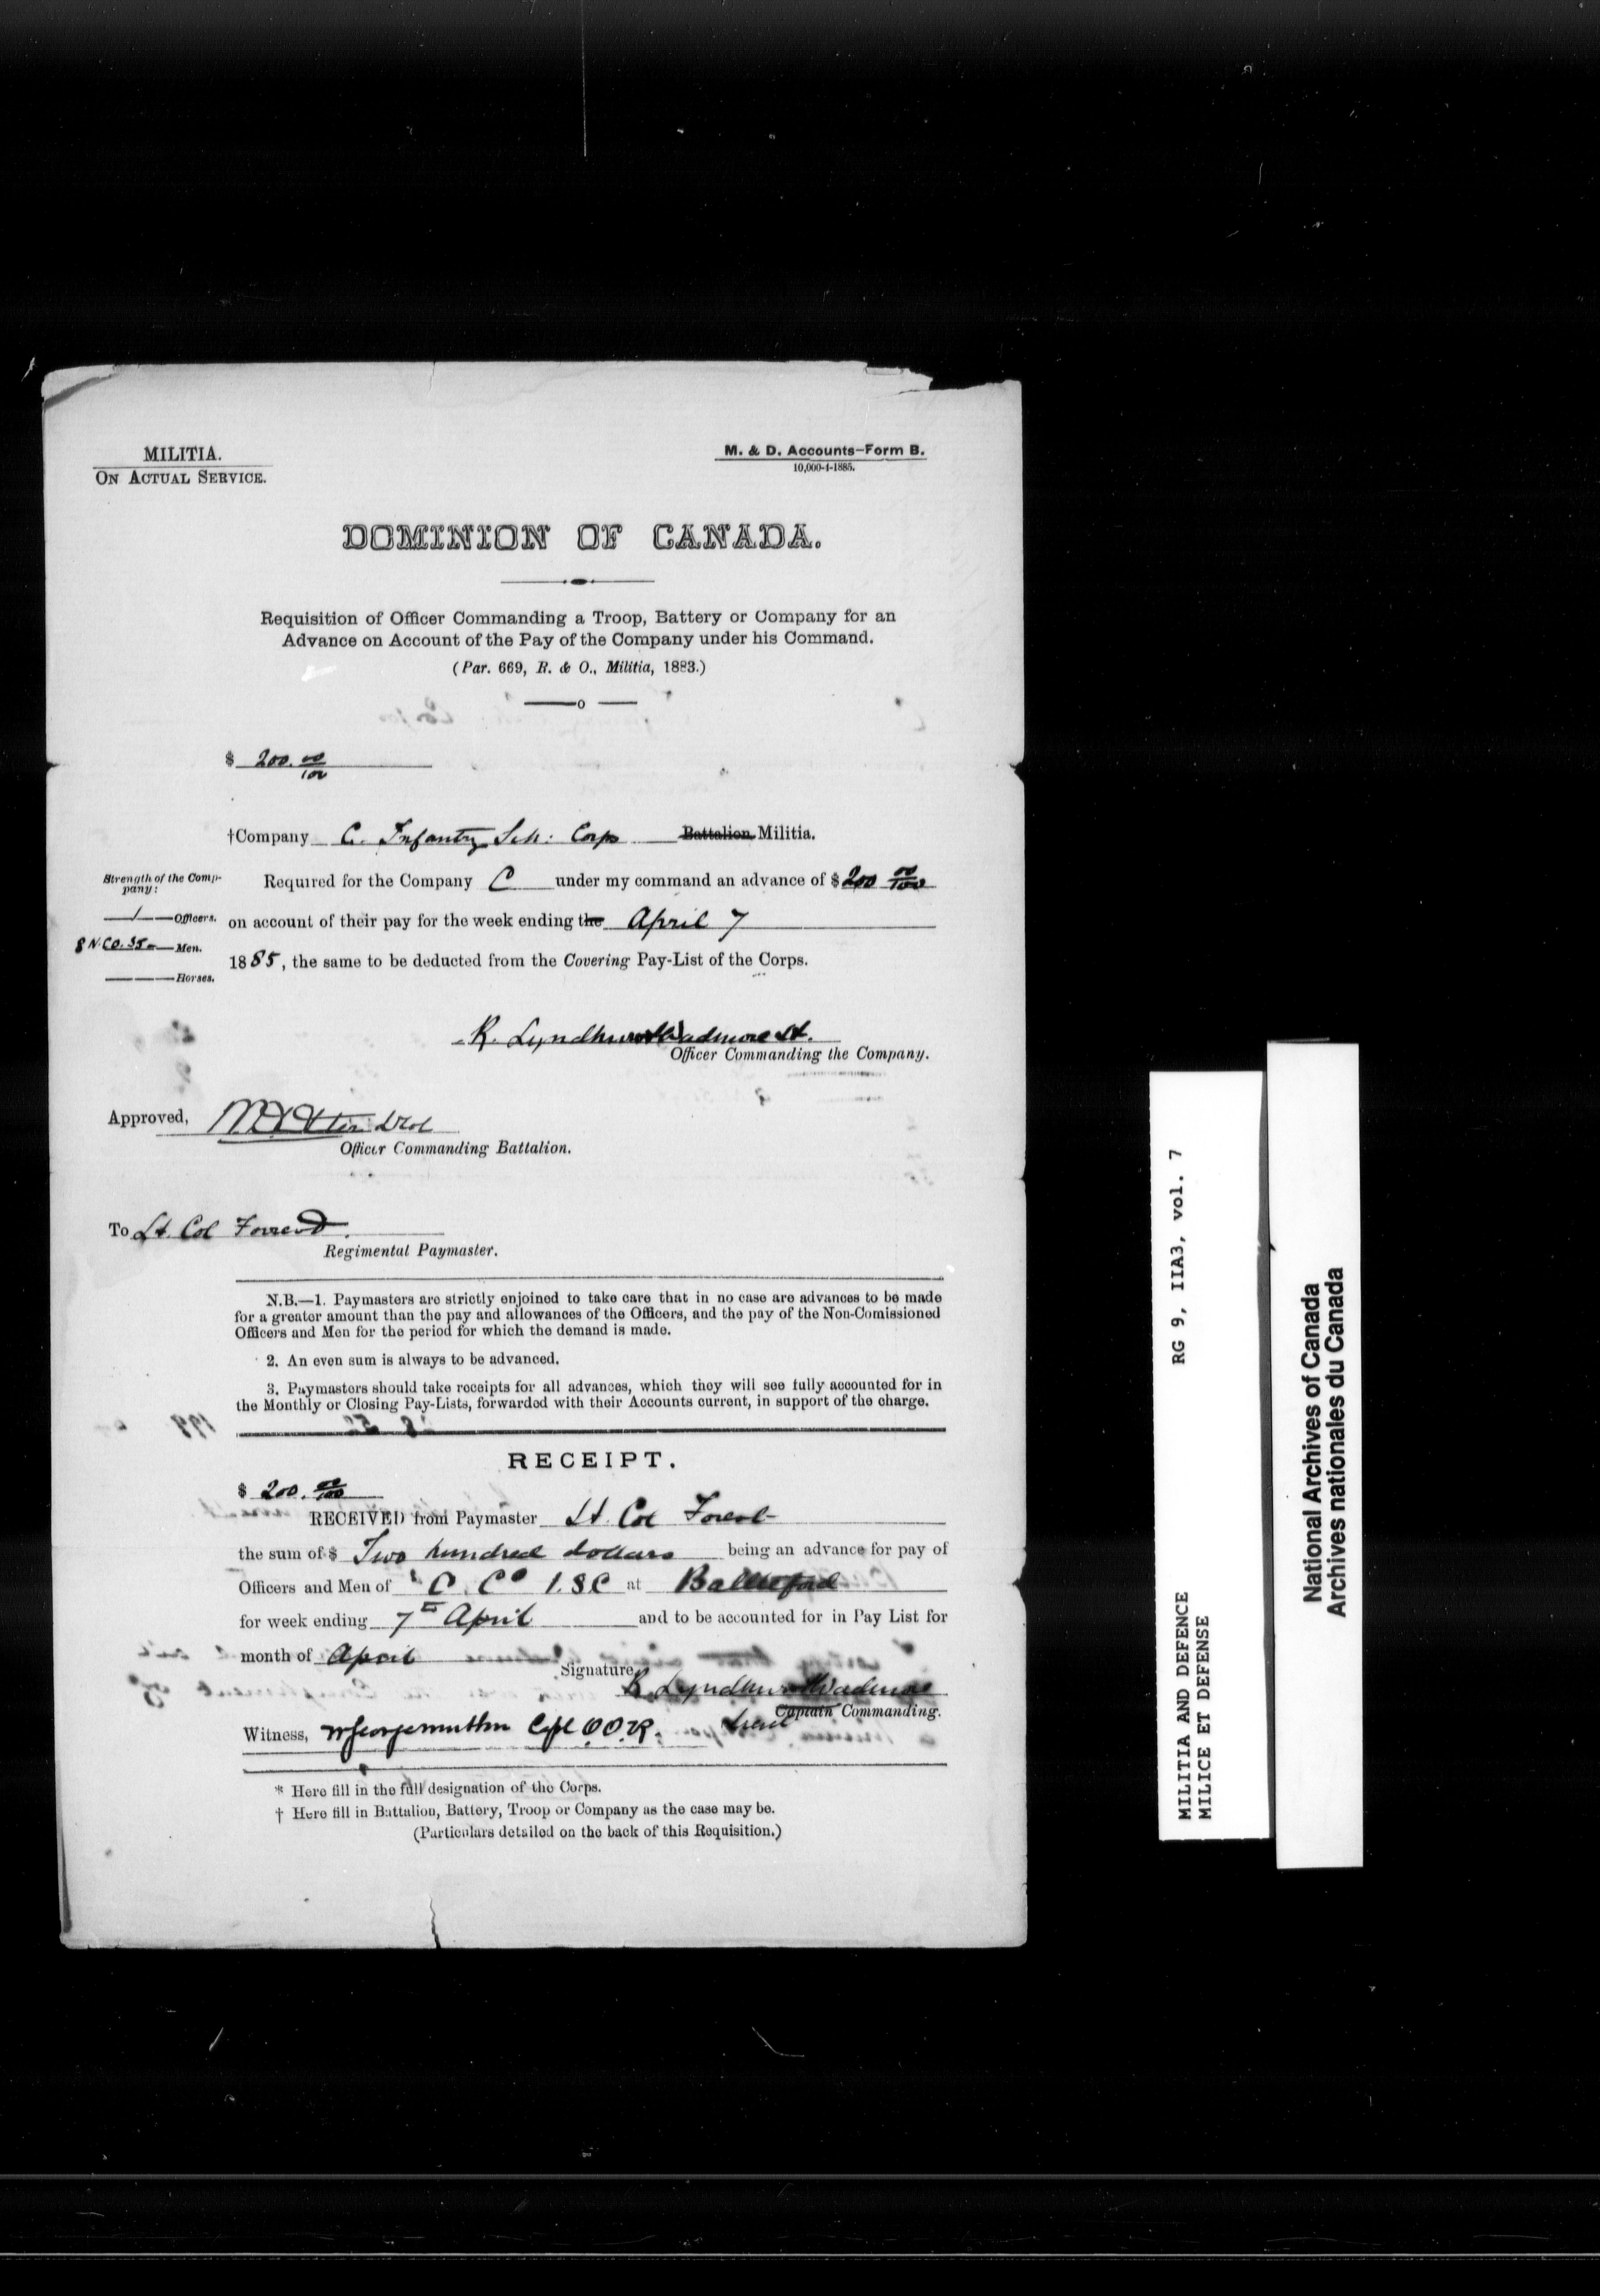 MILITIA.
ON ACTUAL SERVICE.
M. & D. Accounts–Form B.
10,000-4-1885.
DOMINION OF CANADA.
Requisition of Officer Commanding a Troop, Battery or Company for an
Advance on Account of the Pay of the Company under his Command.
(Par. 669, R. & O., Militia, 1883.)
$ 200. 00/100
†Company C. Infantry Sch: Corps Battalion Militia.
Strength of the Company:
1 Officers.
8 N.CO. 35 Men.
Horses.
Required for the Company C under my command an advance of $ 200 00/100
on account of their pay for the week ending the April 7
1885, the same to be deducted from the Covering Pay-List of the Corps.
R. Lyndhurst Wadmore Lt.
Officer Commanding the Company.
Approved, W D Otter Lt Col
Officer Commanding Battalion.
To Lt. Col Forrest.
Regimental Paymaster.
N.B.—1. Paymasters are strictly enjoined to take care that in no case are advances to be made
for a greater amount than the pay and allowances of the Officers, and the pay of the Non-Comissioned
Officers and Men for the period for which the demand is made.
2. An even sum is always to be advanced.
3. Paymasters should take receipts for all advances, which they will see fully accounted for in
the Monthly or Closing Pay-Lists, forwarded with their Accounts current, in support of the charge.
RECEIPT.
$ 200. 00/100
RECEIVED from Paymaster Lt. Col Forest
the sum of $ Two hundred dollars being an advance for pay of
Officers and Men of 'C. Co I.S.C at Battleford
for week ending 7th April and to be accounted for in Pay List for
month of April
Signature, R Lyndhurst Wadmore
Captain Commanding.
Lieut
Witness, Capt Q.O.R.
* Here fill in the full designation of the Corps.
† Here fill in Battalion, Battery, Troop or Company as the case may be.
(Particulars detailed on the back of this Requisition.)
MILITIA AND DEFENCE RG 9, IIA3, vol. 7
MILICE ET DEFENSE
National Archives of Canada
Archives nationales du Canada